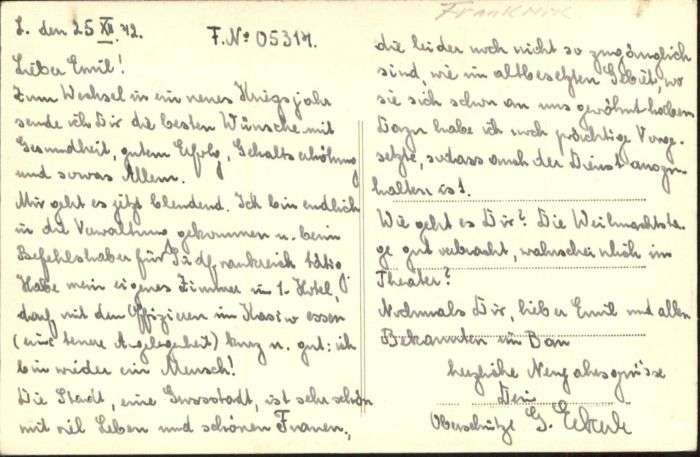 L. den 25 XII. 42.
F.No 05317.
Lieber Emil!
Zum Wechsel in ein neues Kriegsjahr
sende ich Dir die besten Wünsche mit
Gesundheit, gutem Erfolg, Gehaltserhöhung
und sowas Allem.
Mir geht es jetzt blendend. Ich bin endlich
in die Verwaltung gekommen u. beim
Befehlshaber für Südfrankreich tätig
Habe mein eigenes Zimmer im 1. Hotel,
darf mit den Offizieren im Kasino essen
(eine teuere Angelegenheit) kurz u. gut: ich
bin wieder ein Mensch!
Die Stadt, eine Grossstadt, ist sehr schön
mit viel Leben und schönen Frauen,
Frankreich
die leider noch nicht so zugänglich
sind, wie im altbesetzten Gebiet, wo
sie sich schon an uns gewöhnt haben
Dazu habe ich noch prächtige Vorge-
setzte, sodass auch der Dienst auszu-
halten ist.
Wie geht es Dir? Die Weihnachtsta-
ge gut verbracht, wahrscheinlich im
Theater?
Nochmals Dir, lieber Emil und allen
Bekannten im Bau
herzliche Neujahrsgrüsse
Dein
Oberschütze G.